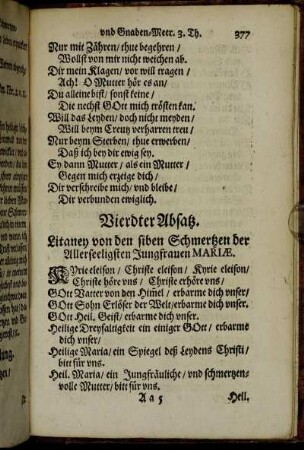 vnd Gnaden-Meer. 3. Th. 377
Nur mit Zähren/ thue begehren/
Wollst von mir nicht weichen ab.
Dir mein Klagen/ vor will tragen/
Ach! O Mutter hör es an/
Du alleine bist/ sonst keine/
Die nechst GOtt mich trösten kan.
Will das Leyden/ doch nicht meyden/
Will beym Creutz verharren treu/
Nur beym Sterben/ thue erwerben/
Daß ich bey dir ewig sey.
Ey dann Mutter/ als ein Mutter/
Gegen mich erzeige dich/
Dir verschreibe mich/ vnd bleibe/
Dir verbunden ewiglich.
Vierdter Absatz.
Litaney von den siben Schmertzen der
Allerseeligsten Jungfrauen MARIÆ.
KYrie eleison/ Christe eleison/ Kyrie eleison/
Christe höre vns/ Christe erhöre vns/
GOtt Vatter von den Him̃el/ erbarme dich vnser/
GOtt Sohn Erlöser der Welt/ erbarme dich vnser.
GOtt Heil. Geist/ erbarme dich vnser.
Heilige Dreyfaltigkeit ein einiger GOtt/ erbarme
dich vnser/
Heilige Maria/ ein Spiegel deß Leydens Christi/
bitt für vns.
Heil. Maria/ ein Jungfräuliche/ vnd schmertzen-
volle Mutter/ bitt für vns.
A a 5 Heil.